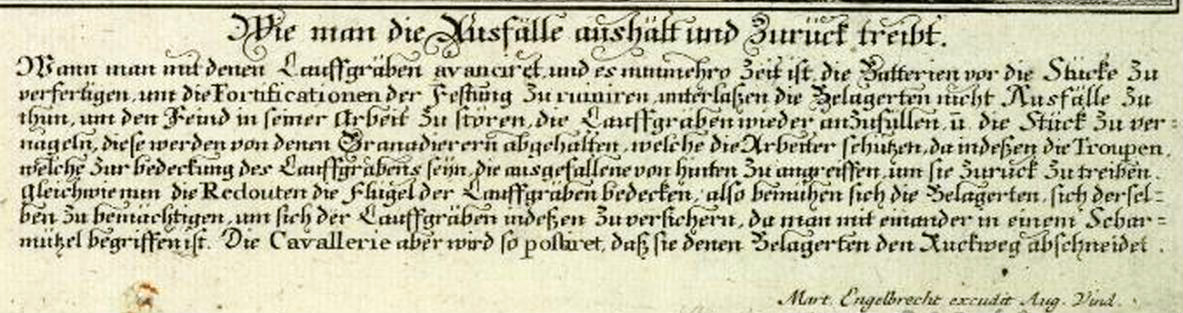 Wie man die Ausfälle aushält und Zurück treibt.
Wann man mit denen Lauffgräben avanciret, und es nunmehro Zeit ist, die Batterien vor die Stücke Zu
verfertigen, um die Fortificationen der Festung Zu ruiniren, unterlaßen die Belagerten nicht Ausfälle Zu
thun, um den Feind in seiner Arbeit Zu stören, die Lauffgraben wieder anZufüllen, ū. die Stück Zu ver=
nageln, diese werden von denen Granadierern abgehalten, welche die Arbeiter schützen, da indeßen die Troupen,
welche Zur bedeckung des Lauffgrabens seÿn, die ausgefallene von hinten Zu angreiffen, um sie Zurück Zu treiben.
Gleichwie nun die Redouten die Flügel der Lauffgräben bedecken, also bemühen sich die Belagerten, sich dersel=
ben Zu bemächtigen, um sich der Lauffgräben indeßen Zu versichern, da man mit einander in einem Schar=
mützel begriffen ist. Die Cavallerie aber wird so postiret, daß sie denen Belagerten den Ruckweg abschneidet.
Mart. Engelbrecht excudit Aug. Vind.